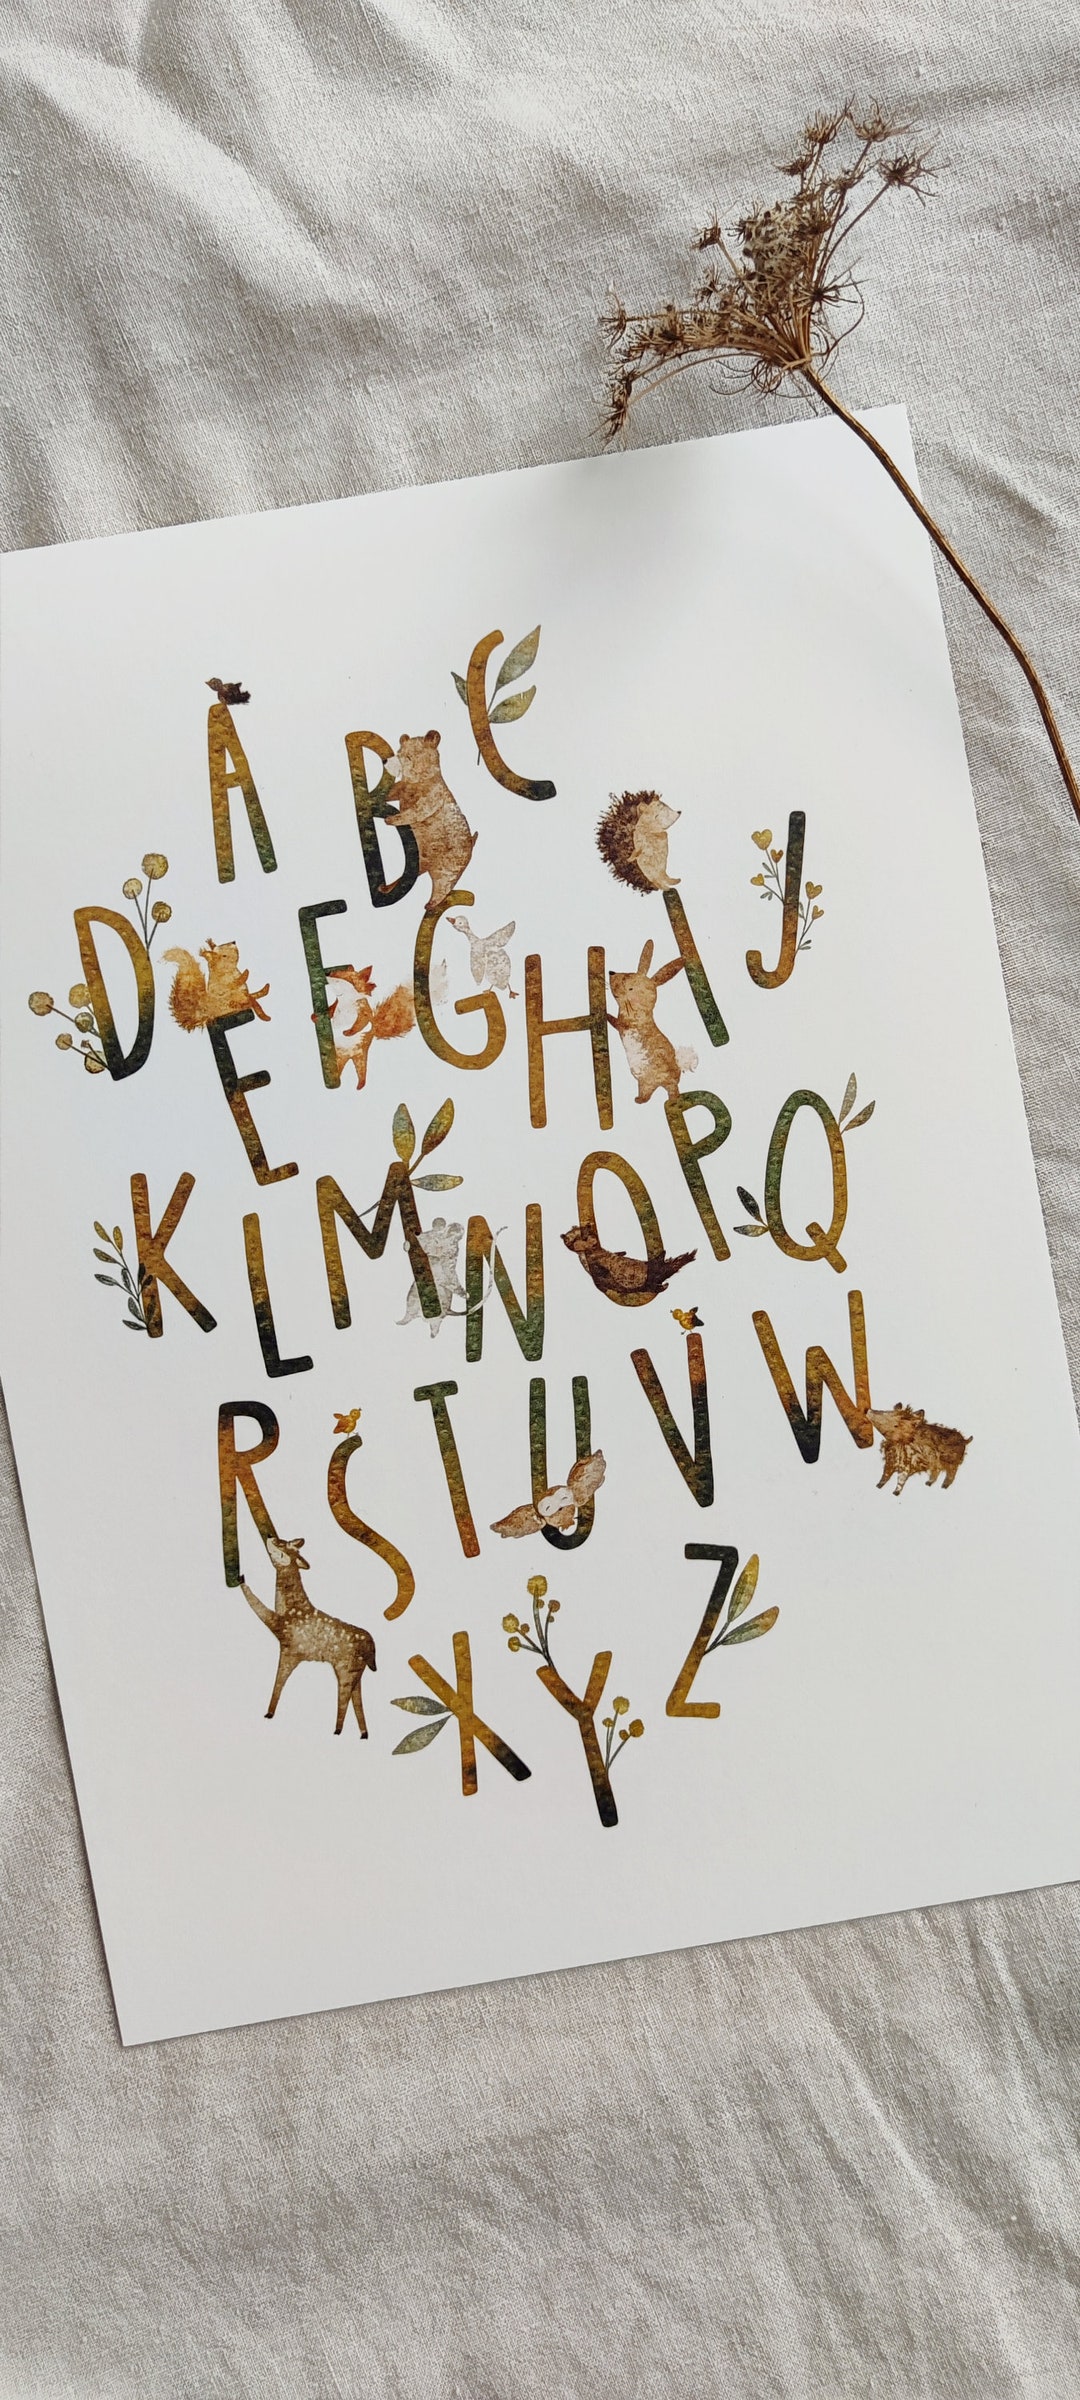 A B C
D E F G H I J
K L M N O P Q
R S T U V W
X Y Z